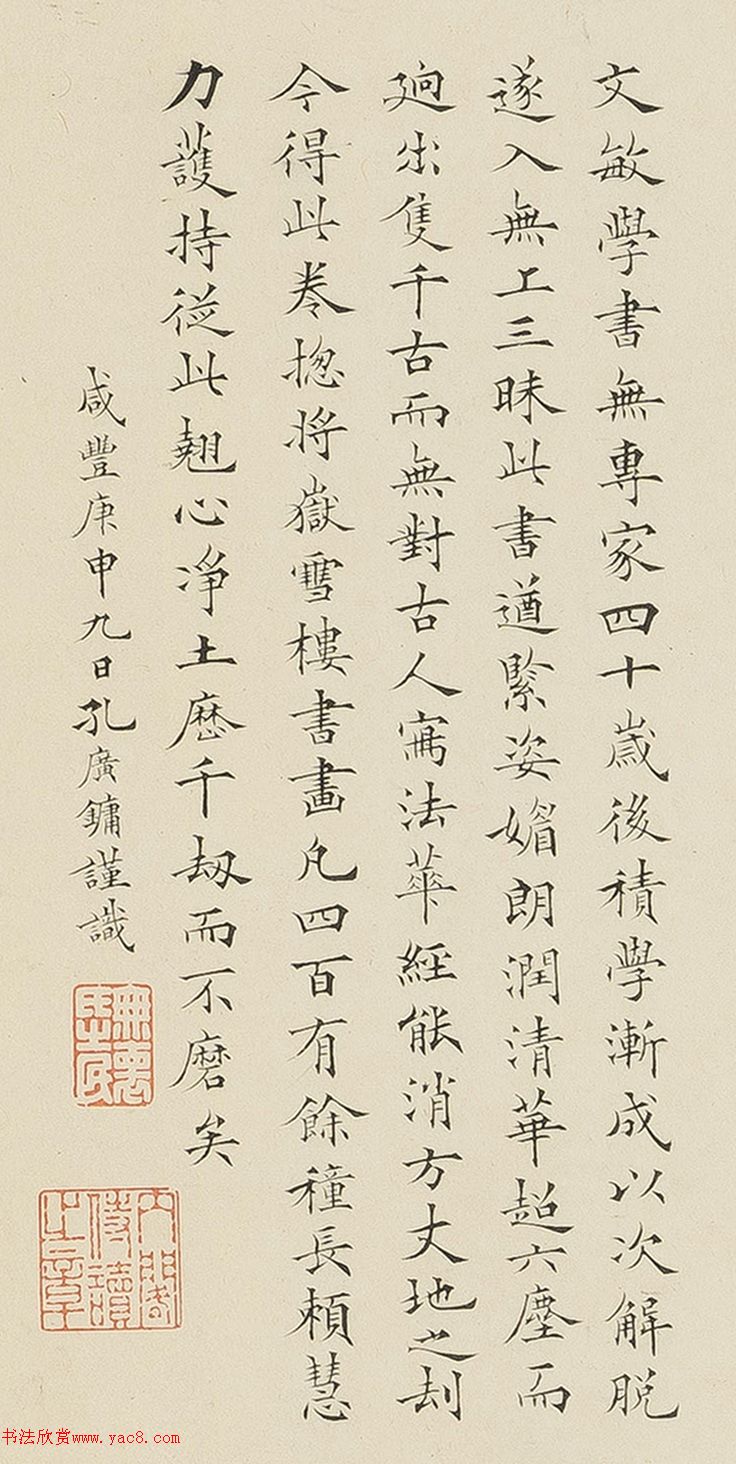 文敏學書無專家四十歲後積學漸成以次解脫
遂入無上三昧此書遒緊姿媚朗潤清華超六塵而
迥出隻千古而無對古人寫法華經能消方丈地之刦
今得此卷揔將嶽雪樓書畫凡四百有餘種長賴慧
力護持從此翹心淨土歷千刼而不磨矣
咸豐庚申九日孔廣鏞謹識
內閣侍讀之章
书法欣赏www.yac8.com